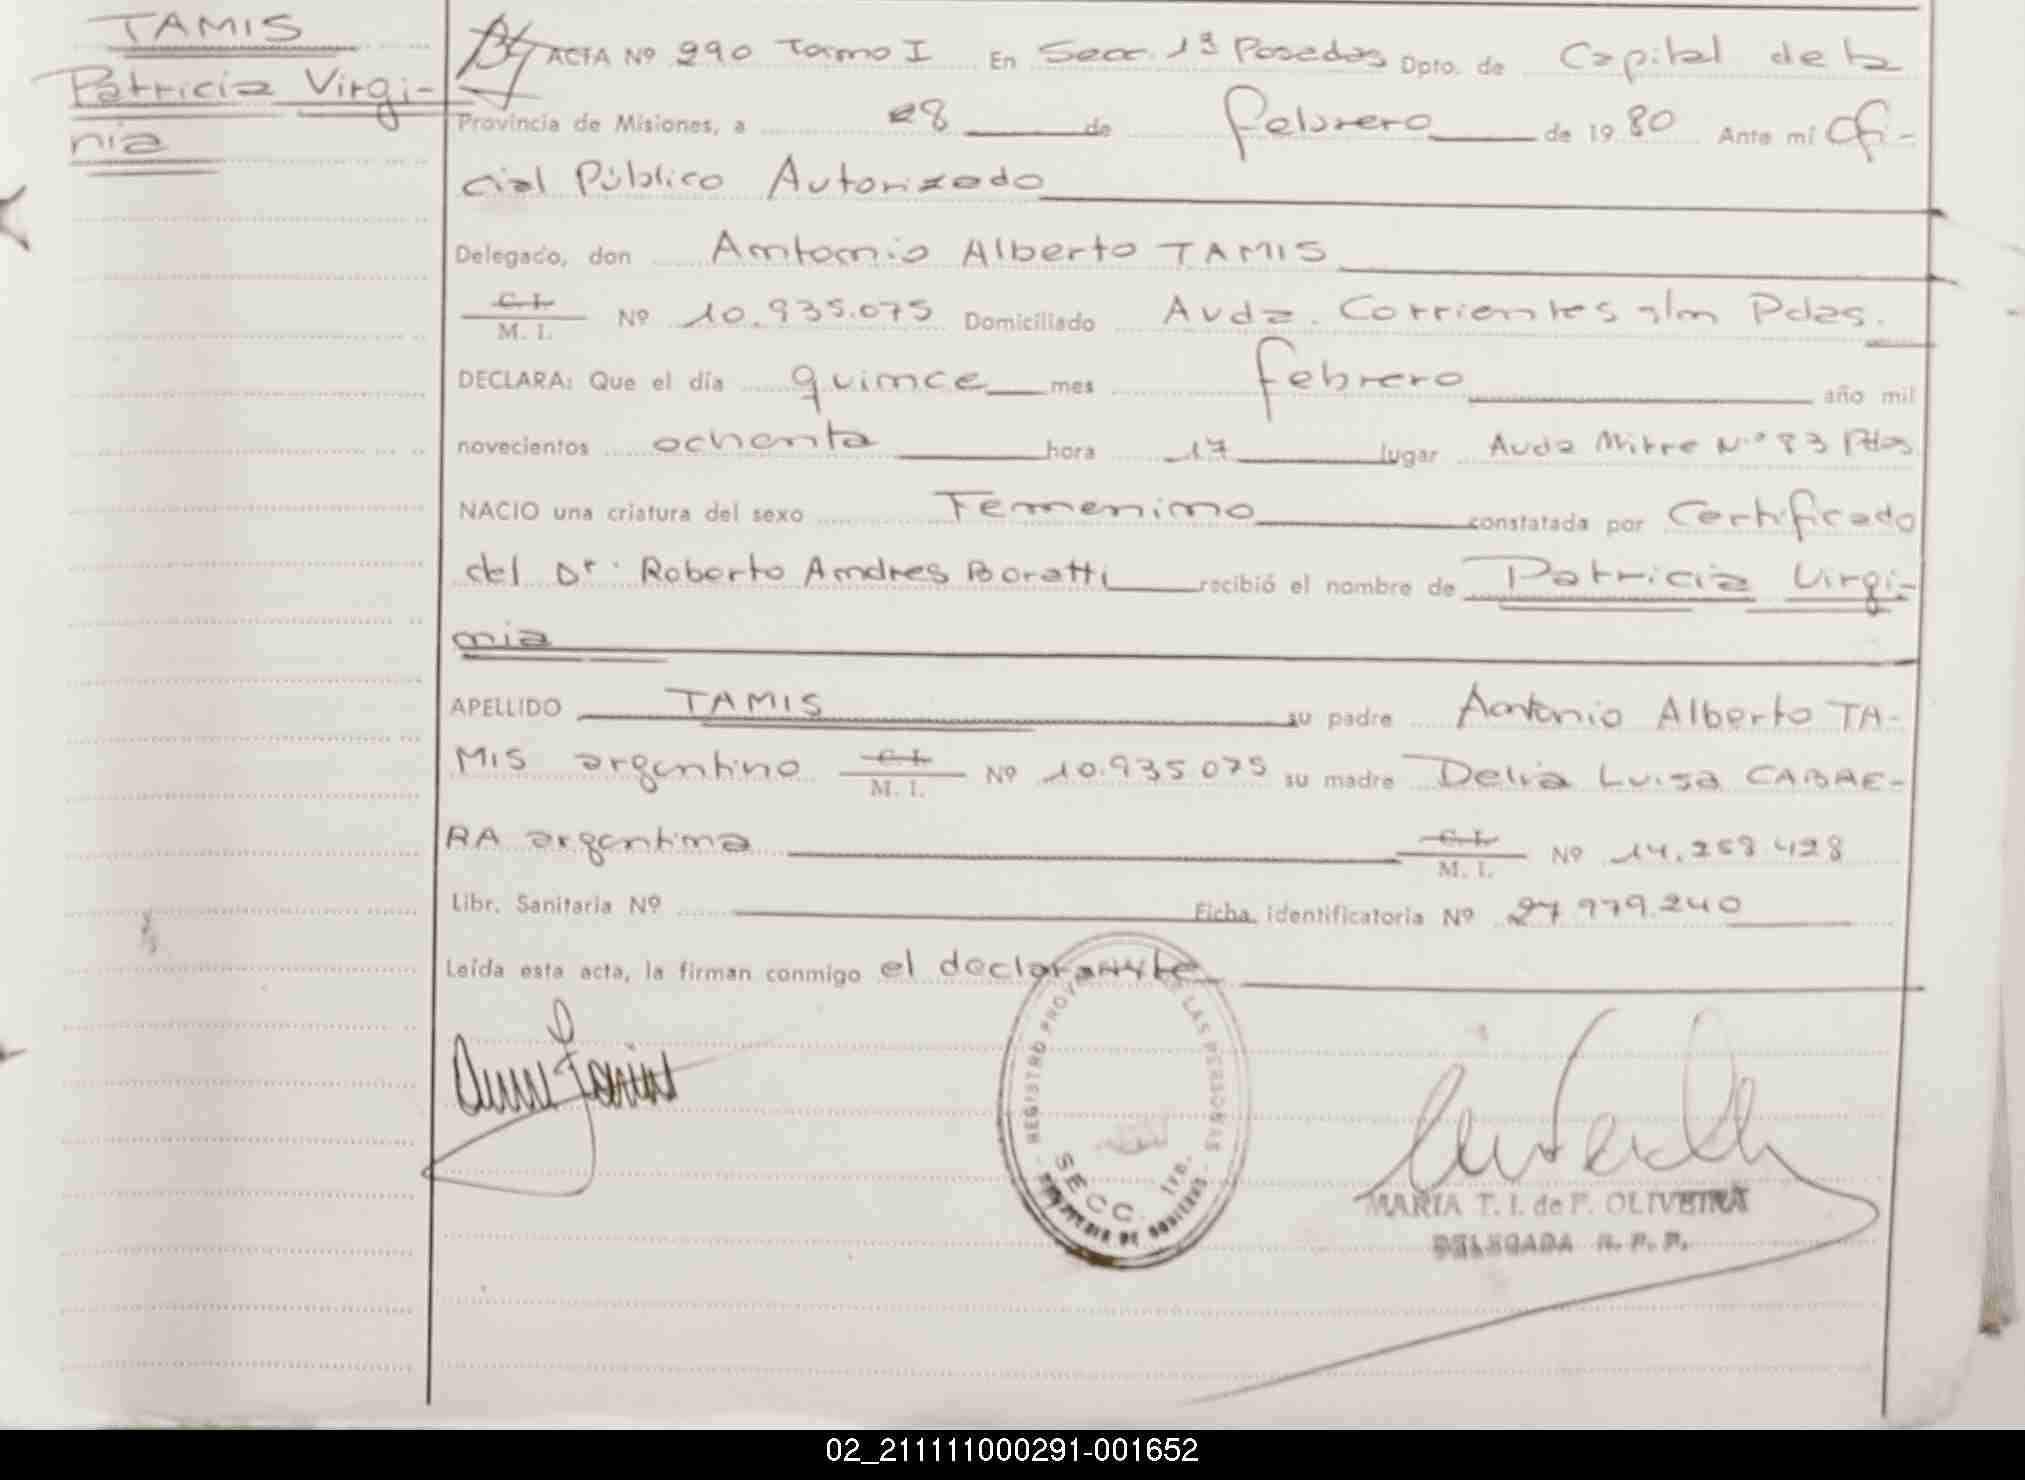 TAMIS
Patricia Virgi-
nia
ACTA Nº 290 Tomo I En Secc. 1ª Posadas Dpto. de Capital de la
Provincia de Misiones, a 28 de febrero de 1980 Ante mí Ofi-
cial Público Autorizado
Delegado, don Antonio Alberto TAMIS
C. I.
M. I. Nº 10.935.075 Domiciliado Avda. Corrientes s/n Pdas.
DECLARA: Que el día quince mes febrero año mil
novecientos ochenta hora 17 lugar Avda Mitre Nº 83 Pdas
NACIO una criatura del sexo Femenino constatada por Certificado
del Dr. Roberto Andres Boratti recibió el nombre de Patricia Virgi-
nia
APELLIDO TAMIS su padre Antonio Alberto TA-
MIS argentino C. I. M. I. Nº 10.935075 su madre Delia Luisa CABRE-
RA argentina C. I. M. I. Nº 14.258.428
Libr. Sanitaria Nº Ficha identificatoria Nº 27.979.240
Leída esta acta, la firman conmigo el declarante
REGISTRO PROV. LAS PERSONAS
SECC. 1ra.
MARIA T. I. de F. OLIVEIRA
DELEGADA R. P. P.
02_211111000291-001652